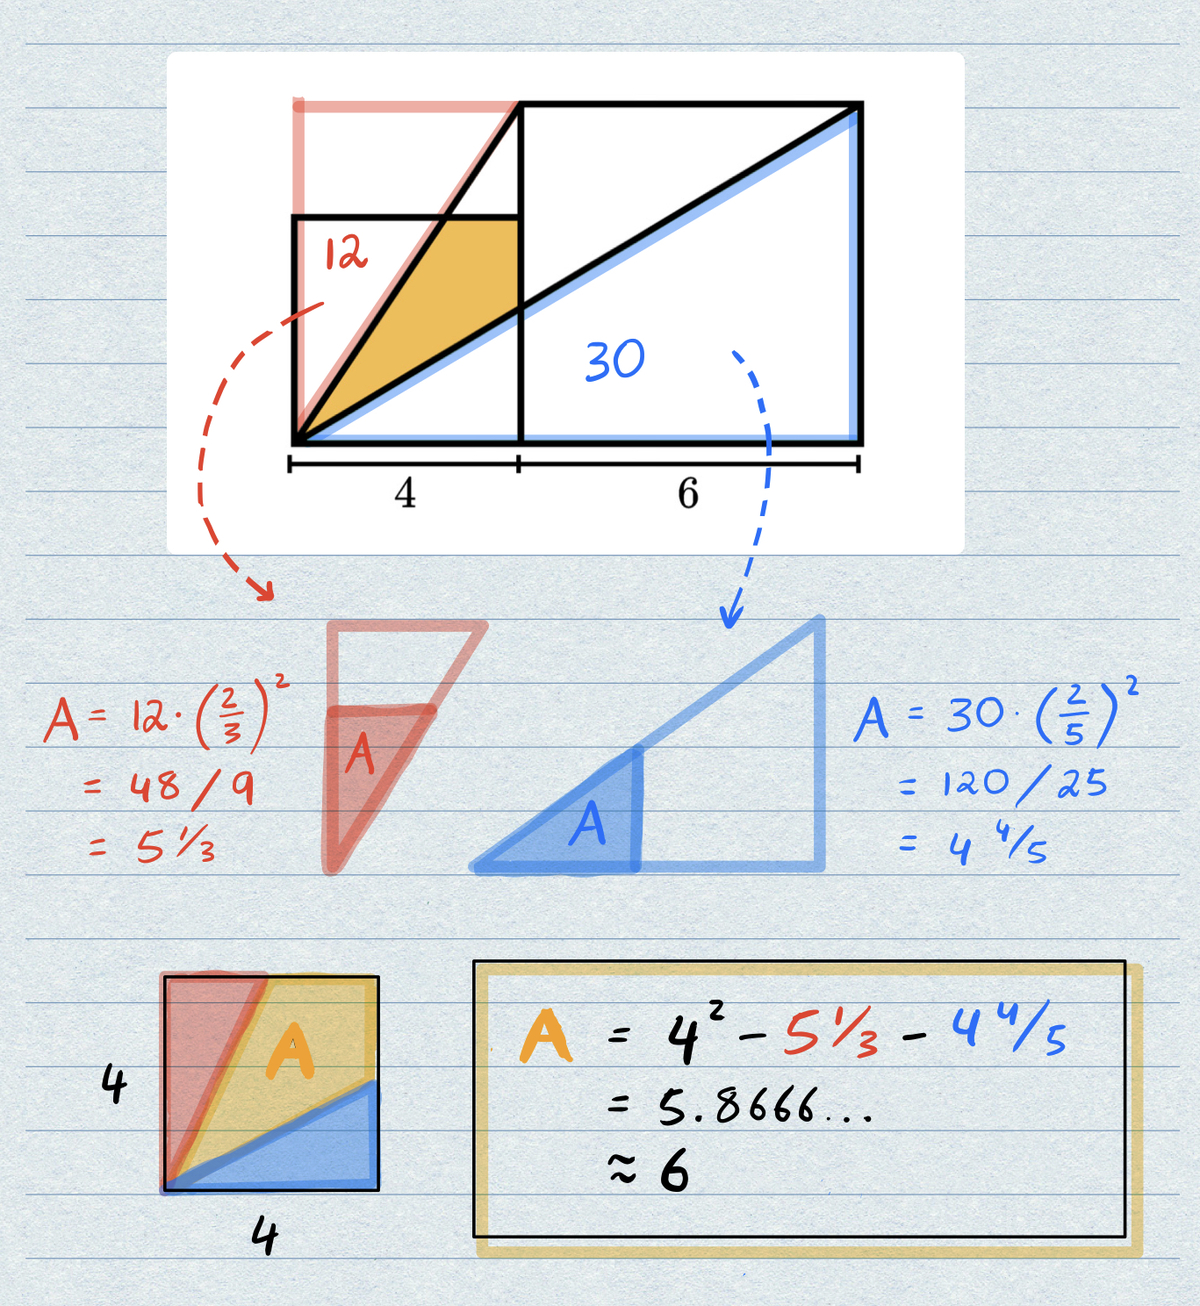 12
30
4
6
A = 12 · (2/3)²
= 48 / 9
= 5 1/3
A
A
A = 30 · (2/5)²
= 120 / 25
= 4 4/5
4
A
4
A = 4² − 5 1/3 − 4 4/5
= 5.8666...
≈ 6